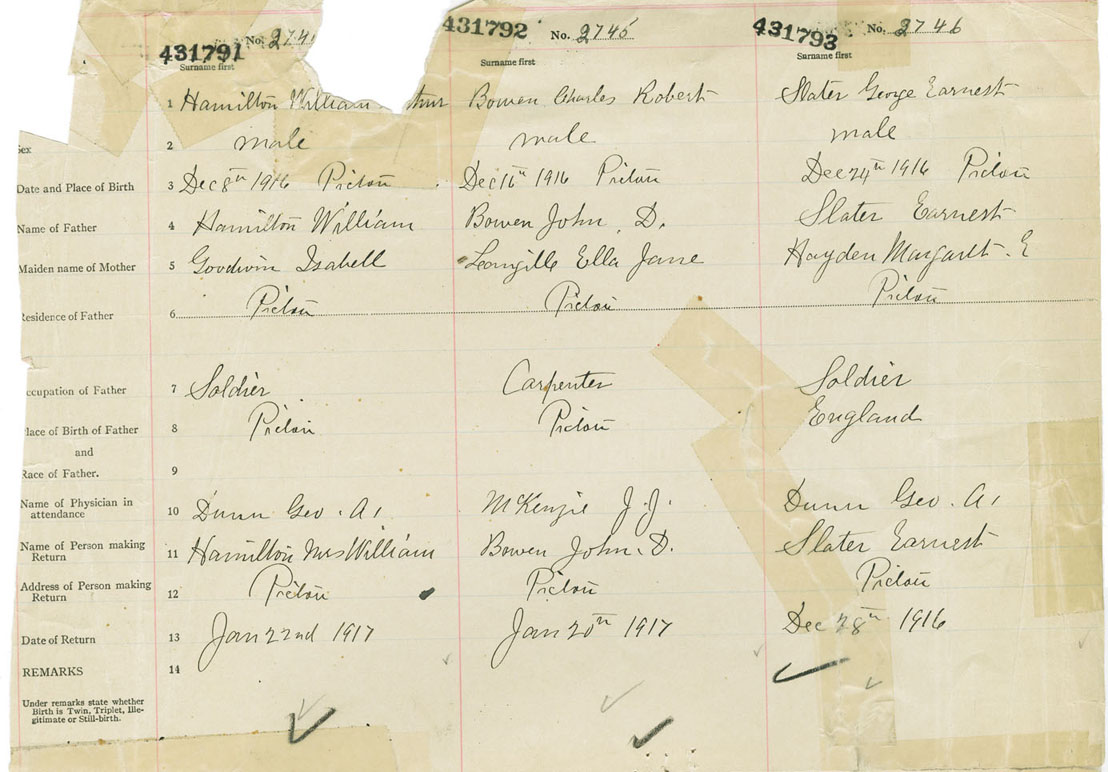 431791 No. 274 431792 No. 2745 431793 No. 2746
Surname first Surname first Surname first
1 Hamilton William thur Bowen Charles Robert Slater George Earnest
Sex 2 male male male
Date and Place of Birth 3 Dec 8th 1916 Picton Dec 16th 1916 Picton Dec 24th 1916 Picton
Name of Father 4 Hamilton William Bowen John. D. Slater Earnest
Maiden name of Mother 5 Goodwin Isabell Ella Jane Hayden Margaret. E
Residence of Father 6 Picton Picton Picton
ccupation of Father 7 Soldier Carpenter Soldier
lace of Birth of Father 8 Picton Picton England
and
Race of Father. 9
Name of Physician in
attendance 10 Dunn Geo. A. McKenzie J. J. Dunn Geo. A.
Name of Person making
Return 11 Hamilton Mrs William Bowen John. D. Slater Earnest
Address of Person making
Return 12 Picton Picton Picton
Date of Return 13 Jan 22nd 1917 Jan 20th 1917 Dec 28th 1916
REMARKS 14
Under remarks state whether
Birth is Twin, Triplet, Ille-
gitimate or Still-birth.